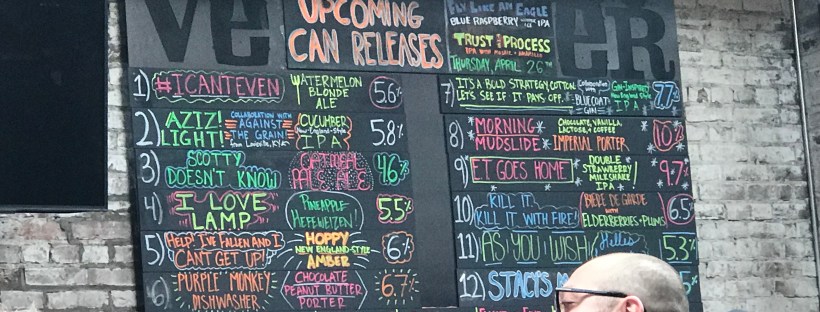 UPCOMING
CAN RELEASES
FLY LIKE AN EAGLE
BLUE RASPBERRY IPA
TRUST THE PROCESS
THURSDAY, APRIL 26TH
1) #ICANTEVEN WATERMELON BLONDE ALE 5.6%
2) AZIZ! LIGHT! COLLABORATION WITH AGAINST THE GRAIN! from Louisville, KY CUCUMBER New England-Style IPA 5.8%
3) SCOTTY DOESN'T KNOW OATMEAL PALE ALE 4.6%
4) I LOVE LAMP PINEAPPLE HEFEWEIZEN! 5.5%
5) HELP! I'VE FALLEN AND I CAN'T GET UP! HOPPY NEW ENGLAND-STYLE AMBER 6%
6) PURPLE MONKEY DISHWASHER CHOCOLATE PEANUT BUTTER PORTER 6.7%
7) IT'S A BOLD STRATEGY, COTTON. LET'S SEE IF IT PAYS OFF. Collaboration with BLUECOAT GIN GIN-INSPIRED New England-Style IPA 7.7%
8) MORNING MUDSLIDE CHOCOLATE, VANILLA, LACTOSE, & COFFEE IMPERIAL PORTER 10%
9) ET GOES HOME DOUBLE STRAWBERRY MILKSHAKE IPA 9.7%
10) KILL IT KILL IT WITH FIRE! BIÈRE DE GARDE WITH ELDERBERRIES + PLUMS 6.5
11) AS YOU WISH Helles 5.3%
12) STACY'S